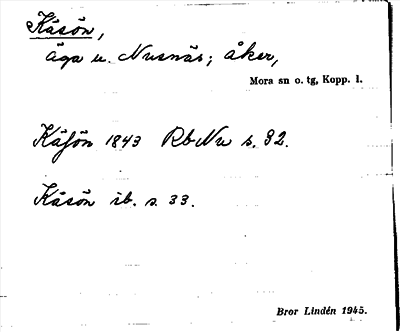 Käsön,
äga u. Nusnäs; åker,
Mora sn o. tg, Kopp. l.
Käſön 1843 Rb Nu s. 32.
Käsön ib. s. 33.
Bror Lindén 1945.